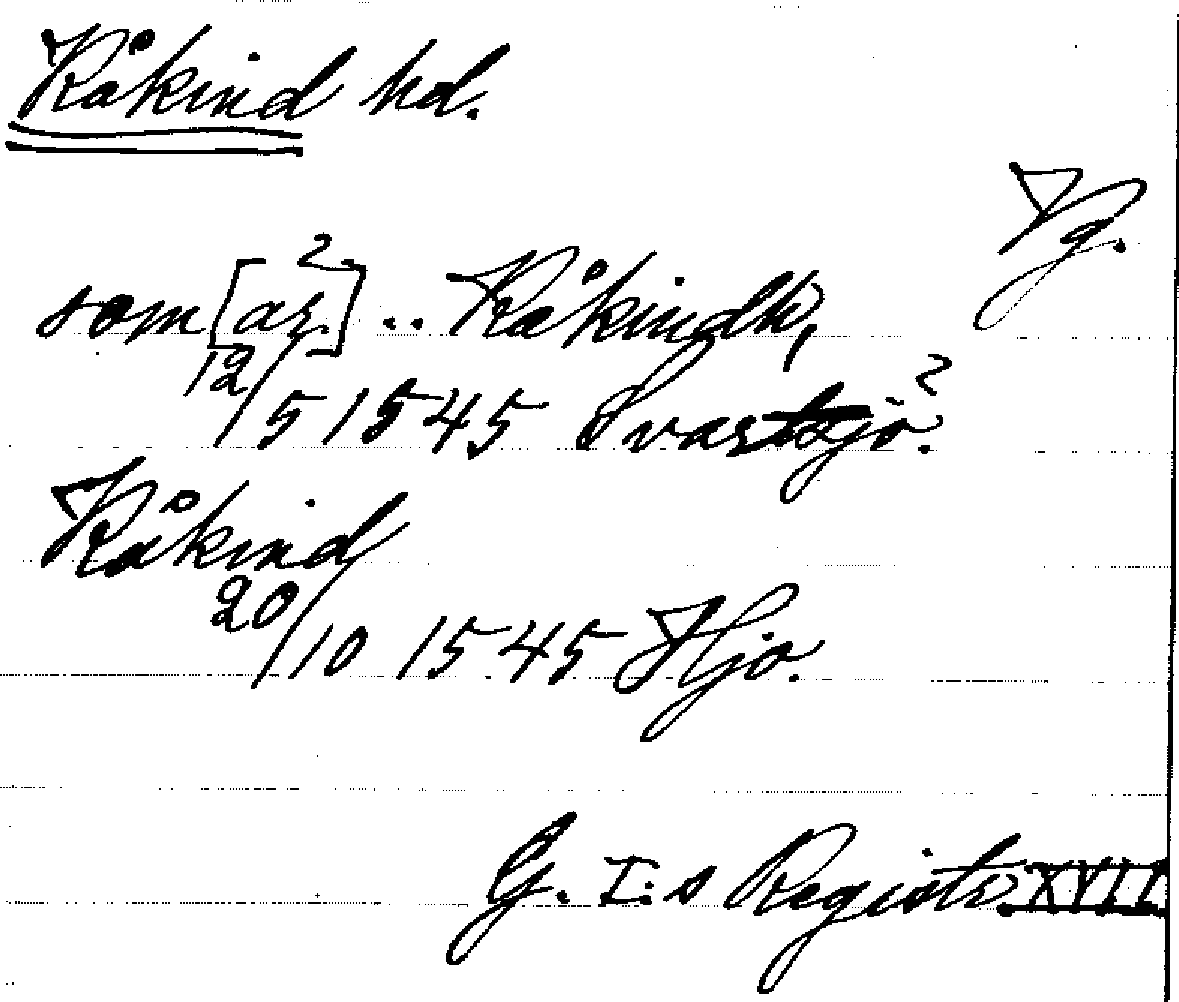 Kåkind hd.
Vg.
som [är?] .. Kåkindh,
12/5 1545 Svartsjö?
Kåkind
20/10 1545 Hjo.
G. I:s Registr. XVII